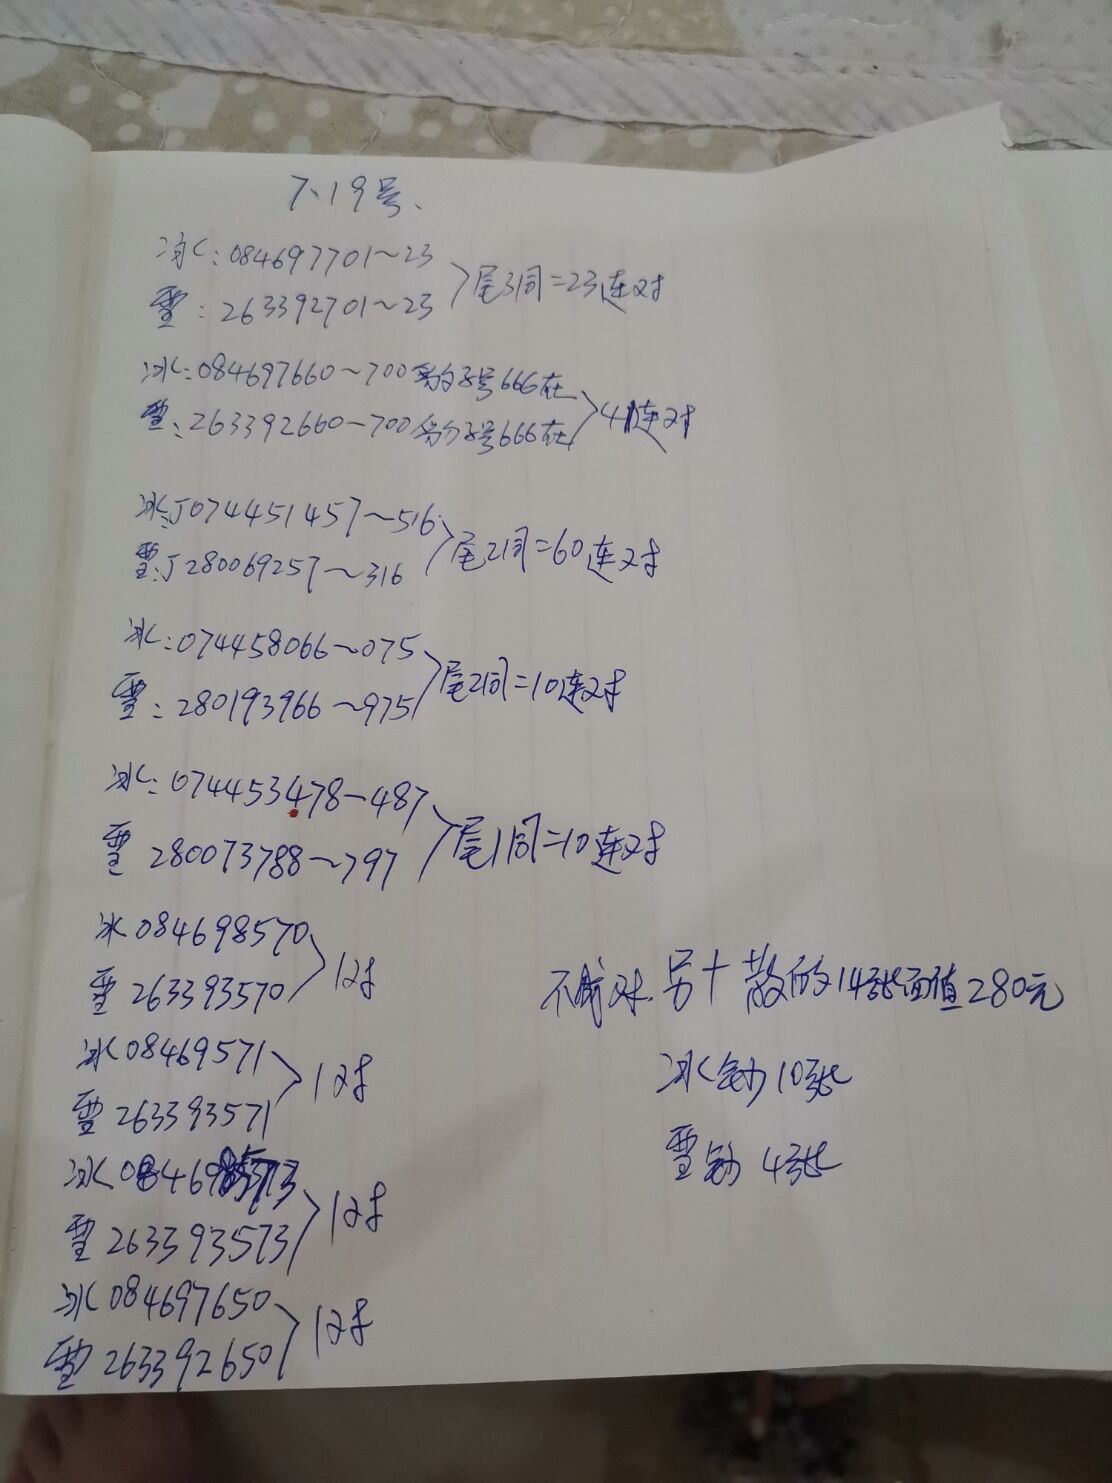 7、19号、
冰：084697701～23
雪：263392701～23
尾3同=23连对
冰：084697660～700 豹子号666在
雪：263392660—700 豹子号666在
41连对
冰：J074451457～516
雪：J280069257～316
尾2同=60连对
冰：074458066～075
雪：280193966～975
尾2同=10连对
冰：074453478—487
雪 280073788～797
尾1同=10连对
冰 084698570
雪 263393570
1对
冰 08469571
雪 263393571
1对
冰 084698573
雪 263393573
1对
冰 084697650
雪 263392650
1对
不成对. 另十散的14张面值280元
冰钞10张
雪钞 4张